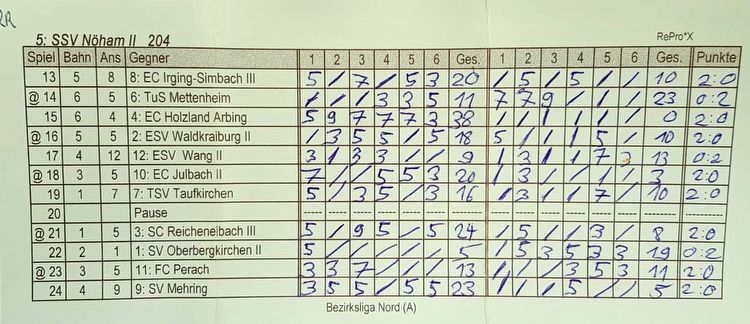 RR
5: SSV Nöham II 204
RePro*X
Spiel Bahn Ans Gegner 1 2 3 4 5 6 Ges. 1 2 3 4 5 6 Ges. Punkte
13 5 8 8: EC Irging-Simbach III 5 / 7 / 5 3 20 / 5 / 5 / / 10 2:0
@ 14 6 5 6: TuS Mettenheim / / / 3 3 5 11 7 7 9 / / / 23 0:2
15 6 4 4: EC Holzland Arbing 5 9 7 7 7 3 38 / / / / / / 0 2:0
@ 16 5 5 2: ESV Waldkraiburg II / 3 5 5 / 5 18 5 / / / 5 / 10 2:0
17 4 12 12: ESV Wang II 3 / 3 3 / / 9 / 3 / / 7 3 13 0:2
@ 18 3 5 10: EC Julbach II 7 / / 5 5 3 20 / 3 / / / / 3 2:0
19 1 7 7: TSV Taufkirchen 5 / 3 5 / 3 16 / 3 / / 7 / 10 2:0
20 Pause
@ 21 1 5 3: SC Reicheneibach III 5 / 9 5 / 5 24 / 5 / / 3 / 8 2:0
22 2 1 1: SV Oberbergkirchen II 5 / / / / / 5 / 3 5 3 5 3 19 0:2
@ 23 3 5 11: FC Perach 3 3 7 / / / 13 / / / 3 5 3 11 2:0
24 4 9 9: SV Mehring 3 5 5 / 5 5 23 / / / 5 / / 5 2:0
Bezirksliga Nord (A)